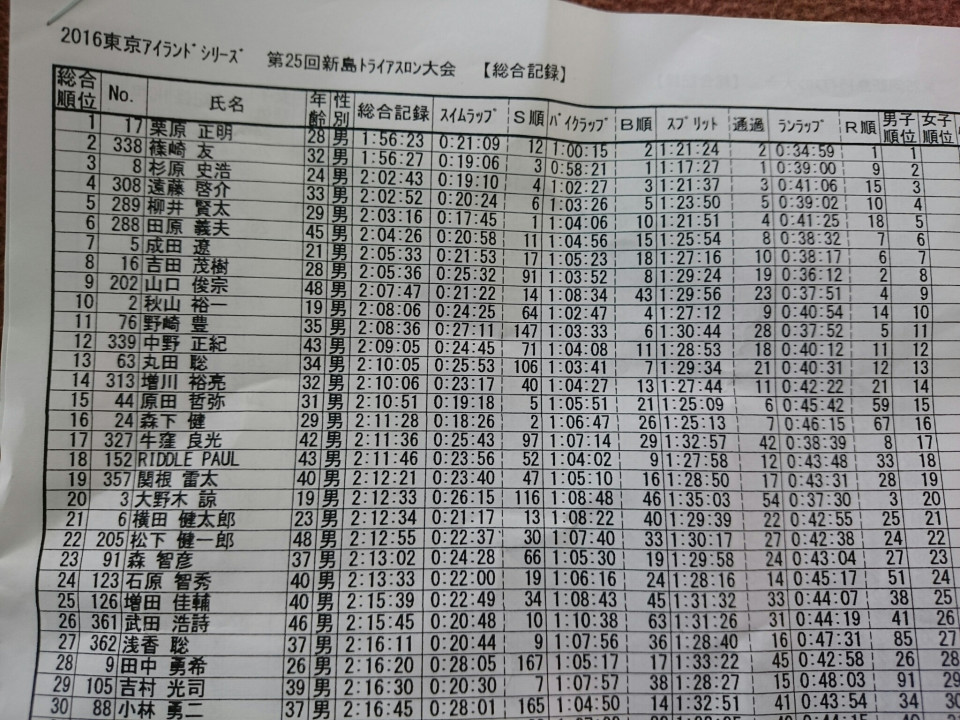 2016東京アイランドシリーズ 第25回新島トライアスロン大会 【総合記録】
総合順位 No. 氏名 年齢 性別 総合記録 スイムラップ S順 バイクラップ B順 スプリット 通過 ランラップ R順 男子順位 女子順位
1 17 栗原 正明 28 男 1:56:23 0:21:09 12 1:00:15 2 1:21:24 2 0:34:59 1 1
2 338 篠崎 友 32 男 1:56:27 0:19:06 3 0:58:21 1 1:17:27 1 0:39:00 9 2
3 8 杉原 史浩 24 男 2:02:43 0:19:10 4 1:02:27 3 1:21:37 3 0:41:06 15 3
4 308 遠藤 啓介 33 男 2:02:52 0:20:24 6 1:03:26 5 1:23:50 5 0:39:02 10 4
5 289 柳井 賢太 29 男 2:03:16 0:17:45 1 1:04:06 10 1:21:51 4 0:41:25 18 5
6 288 田原 義夫 45 男 2:04:26 0:20:58 11 1:04:56 15 1:25:54 8 0:38:32 7 6
7 5 成田 遼 21 男 2:05:33 0:21:53 17 1:05:23 18 1:27:16 10 0:38:17 6 7
8 16 吉田 茂樹 28 男 2:05:36 0:25:32 91 1:03:52 8 1:29:24 19 0:36:12 2 8
9 202 山口 俊宗 48 男 2:07:47 0:21:22 14 1:08:34 43 1:29:56 23 0:37:51 4 9
10 2 秋山 裕一 19 男 2:08:06 0:24:25 64 1:02:47 4 1:27:12 9 0:40:54 14 10
11 76 野崎 豊 35 男 2:08:36 0:27:11 147 1:03:33 6 1:30:44 28 0:37:52 5 11
12 339 中野 正紀 43 男 2:09:05 0:24:45 71 1:04:08 11 1:28:53 18 0:40:12 11 12
13 63 丸田 聡 34 男 2:10:05 0:25:53 106 1:03:41 7 1:29:34 21 0:40:31 12 13
14 313 増川 裕亮 32 男 2:10:06 0:23:17 40 1:04:27 13 1:27:44 11 0:42:22 21 14
15 44 原田 哲弥 31 男 2:10:51 0:19:18 5 1:05:51 21 1:25:09 6 0:45:42 59 15
16 24 森下 健 29 男 2:11:28 0:18:26 2 1:06:47 26 1:25:13 7 0:46:15 67 16
17 327 牛窪 良光 42 男 2:11:36 0:25:43 97 1:07:14 29 1:32:57 42 0:38:39 8 17
18 152 RIDDLE PAUL 43 男 2:11:46 0:23:56 52 1:04:02 9 1:27:58 12 0:43:48 33 18
19 357 関根 雷太 40 男 2:12:21 0:23:40 47 1:05:10 16 1:28:50 17 0:43:31 28 19
20 3 大野木 諒 19 男 2:12:33 0:26:15 116 1:08:48 46 1:35:03 54 0:37:30 3 20
21 6 横田 健太郎 23 男 2:12:34 0:21:17 13 1:08:22 40 1:29:39 22 0:42:55 25 21
22 205 松下 健一郎 48 男 2:12:55 0:22:37 30 1:07:40 33 1:30:17 27 0:42:38 24 22
23 91 森 智彦 37 男 2:13:02 0:24:28 66 1:05:30 19 1:29:58 24 0:43:04 27 23
24 123 石原 智秀 40 男 2:13:33 0:22:00 19 1:06:16 24 1:28:16 14 0:45:17 51 24
25 126 増田 佳輔 40 男 2:15:39 0:22:49 34 1:08:43 45 1:31:32 33 0:44:07 38 25
26 361 武田 浩詩 46 男 2:15:45 0:20:48 10 1:10:38 63 1:31:26 31 0:44:19 41 26
27 362 浅香 聡 37 男 2:16:11 0:20:44 9 1:07:56 36 1:28:40 16 0:47:31 85 27
28 9 田中 勇希 26 男 2:16:20 0:28:05 167 1:05:17 17 1:33:22 45 0:42:58 26 28
29 105 吉村 光司 39 男 2:16:30 0:20:30 7 1:07:57 38 1:28:27 15 0:48:03 91 29
30 88 小林 勇二 37 男 2:16:45 0:28:01 165 1:04:50 14 1:32:51 41 0:43:54 34 30